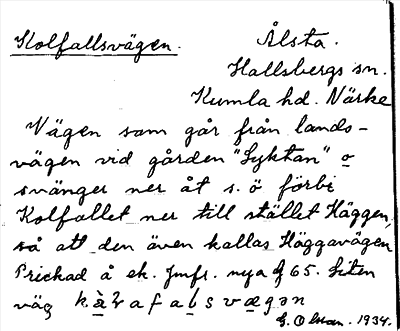 Kolfallsvägen. Ålsta.
Hallsbergs sn.
Kumla hd. Närke
Vägen som går från lands-
vägen vid gården "Lyktan" o
svänger ner åt s. ö förbi
Kolfallet ner till stället Häggen,
så att den även kallas Häggavägen
Prickad å ek. Jmfr. nya 65. Liten
väg
G. Olsson. 1934.